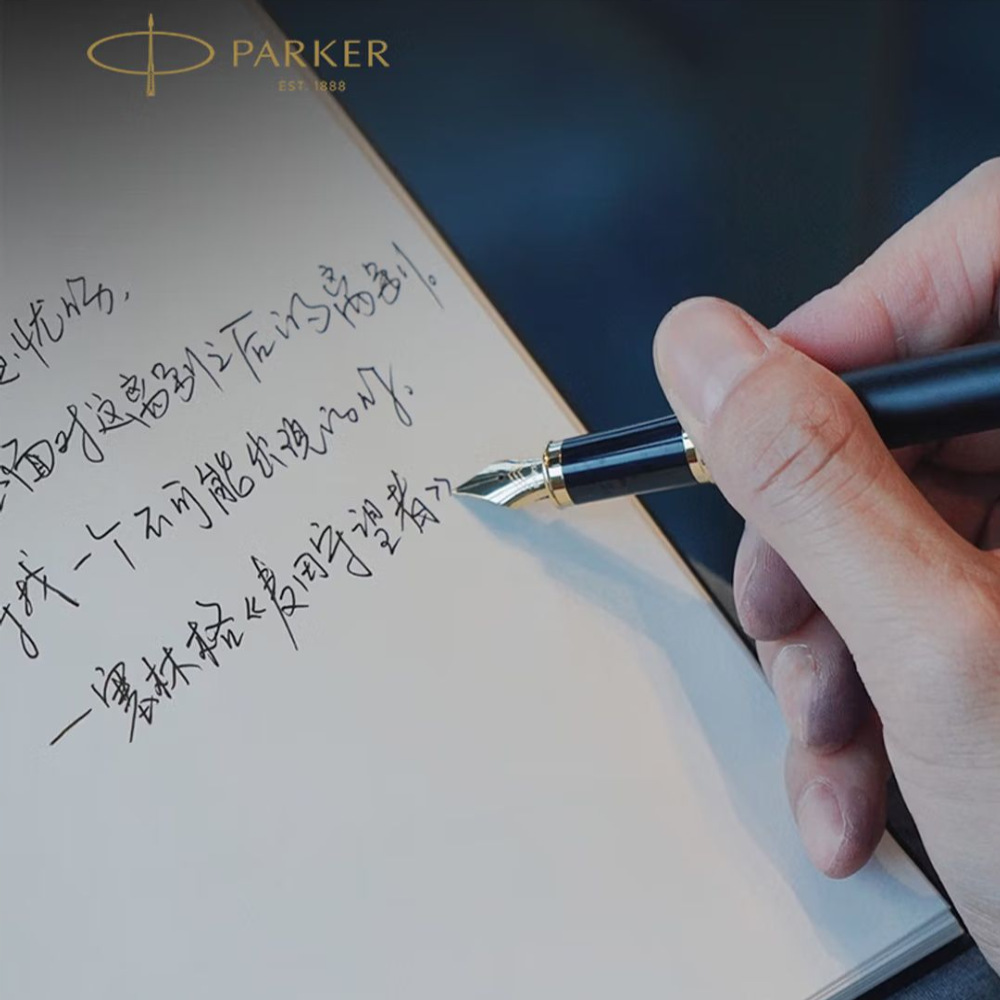 PARKER
EST. 1888
忧伤,
面对这离别之后的离别。
寻找一个不可能出现的人。
—塞林格《麦田守望者》